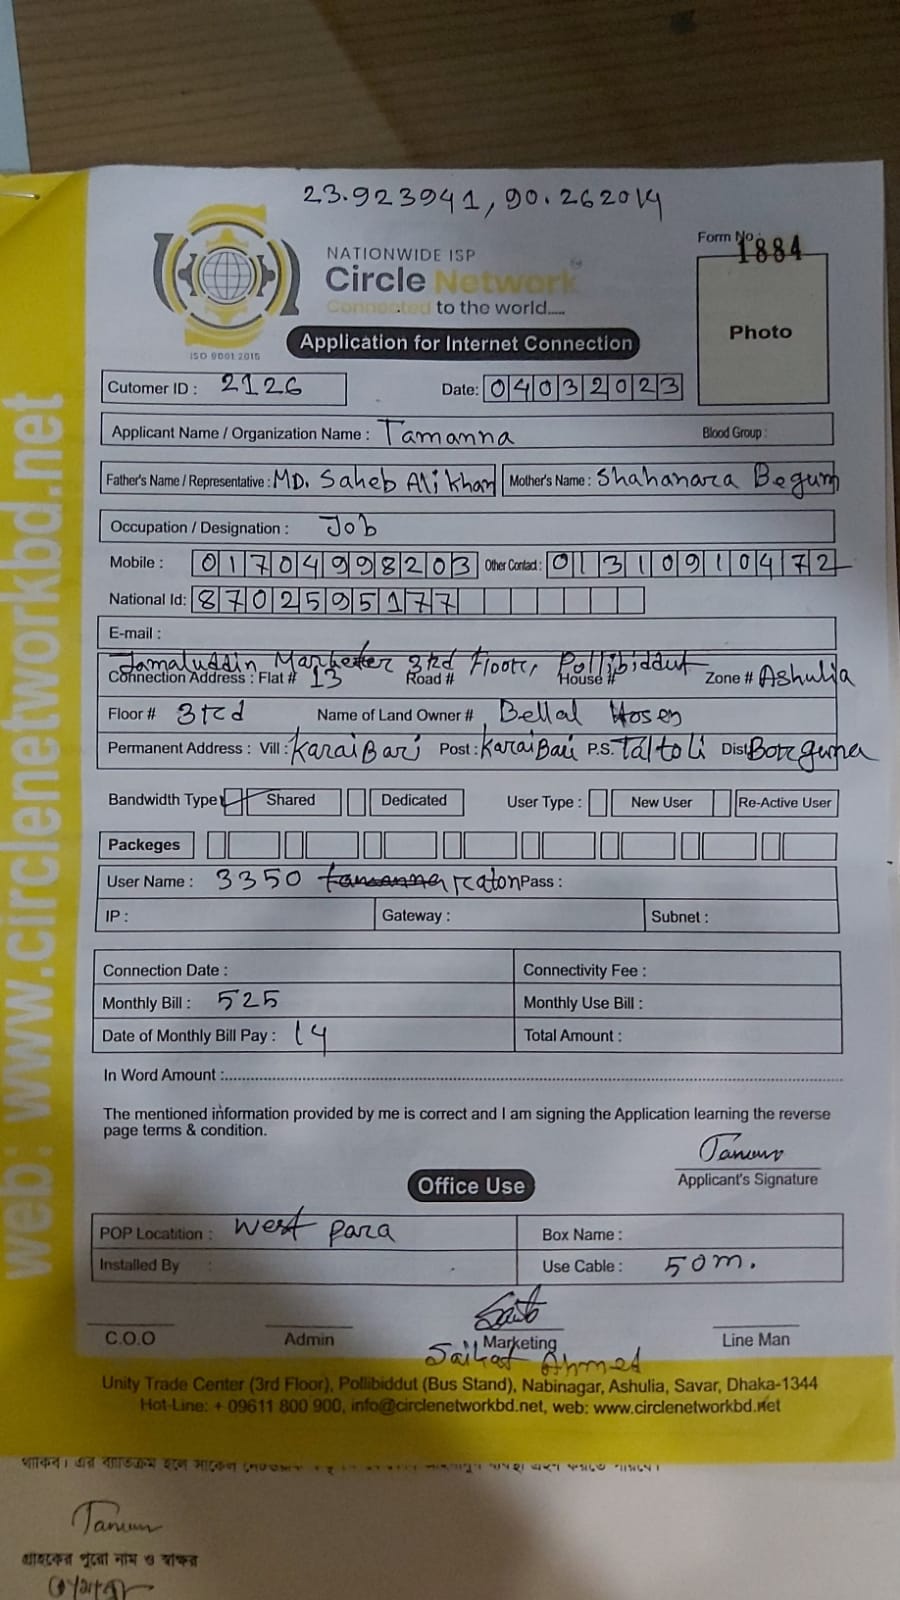 23.923941, 90.262014
NATIONWIDE ISP
Circle Network
Connected to the world.....
ISO 9001:2015
Form No : 1884
Photo
Application for Internet Connection
Cutomer ID : 2126 Date: 04032023
Applicant Name / Organization Name : Tamanna Blood Group :
Father's Name / Representative : MD. Saheb Ali khan Mother's Name : Shahanara Begum
Occupation / Designation : Job
Mobile : 01704998203 Other Contact : 01310910472
National Id: 8702595177
E-mail :
Jamaluddin Market 3rd Floor, Pollibiddut
Connection Address : Flat # 13 Road # House # Zone # Ashulia
Floor # 3rd Name of Land Owner # Bellal Hosen
Permanent Address : Vill : KaraiBari Post : KaraiBari P.S. Taltoli Dist Borguna
Bandwidth Type Shared Dedicated User Type : New User Re-Active User
Packeges
User Name : 3350 tamanna raton Pass :
IP : Gateway : Subnet :
Connection Date : Connectivity Fee :
Monthly Bill : 525 Monthly Use Bill :
Date of Monthly Bill Pay : 14 Total Amount :
In Word Amount :
The mentioned information provided by me is correct and I am signing the Application learning the reverse
page terms & condition.
Applicant's Signature
Office Use
POP Locatition : west para Box Name :
Installed By : Use Cable : 50m.
C.O.O Admin Marketing Line Man
Saikat Ahmed
Unity Trade Center (3rd Floor), Pollibiddut (Bus Stand), Nabinagar, Ashulia, Savar, Dhaka-1344
Hot-Line: + 09611 800 900, info@circlenetworkbd.net, web: www.circlenetworkbd.net
web: www.circlenetworkbd.net
গ্রাহকের পুরো নাম ও স্বাক্ষর